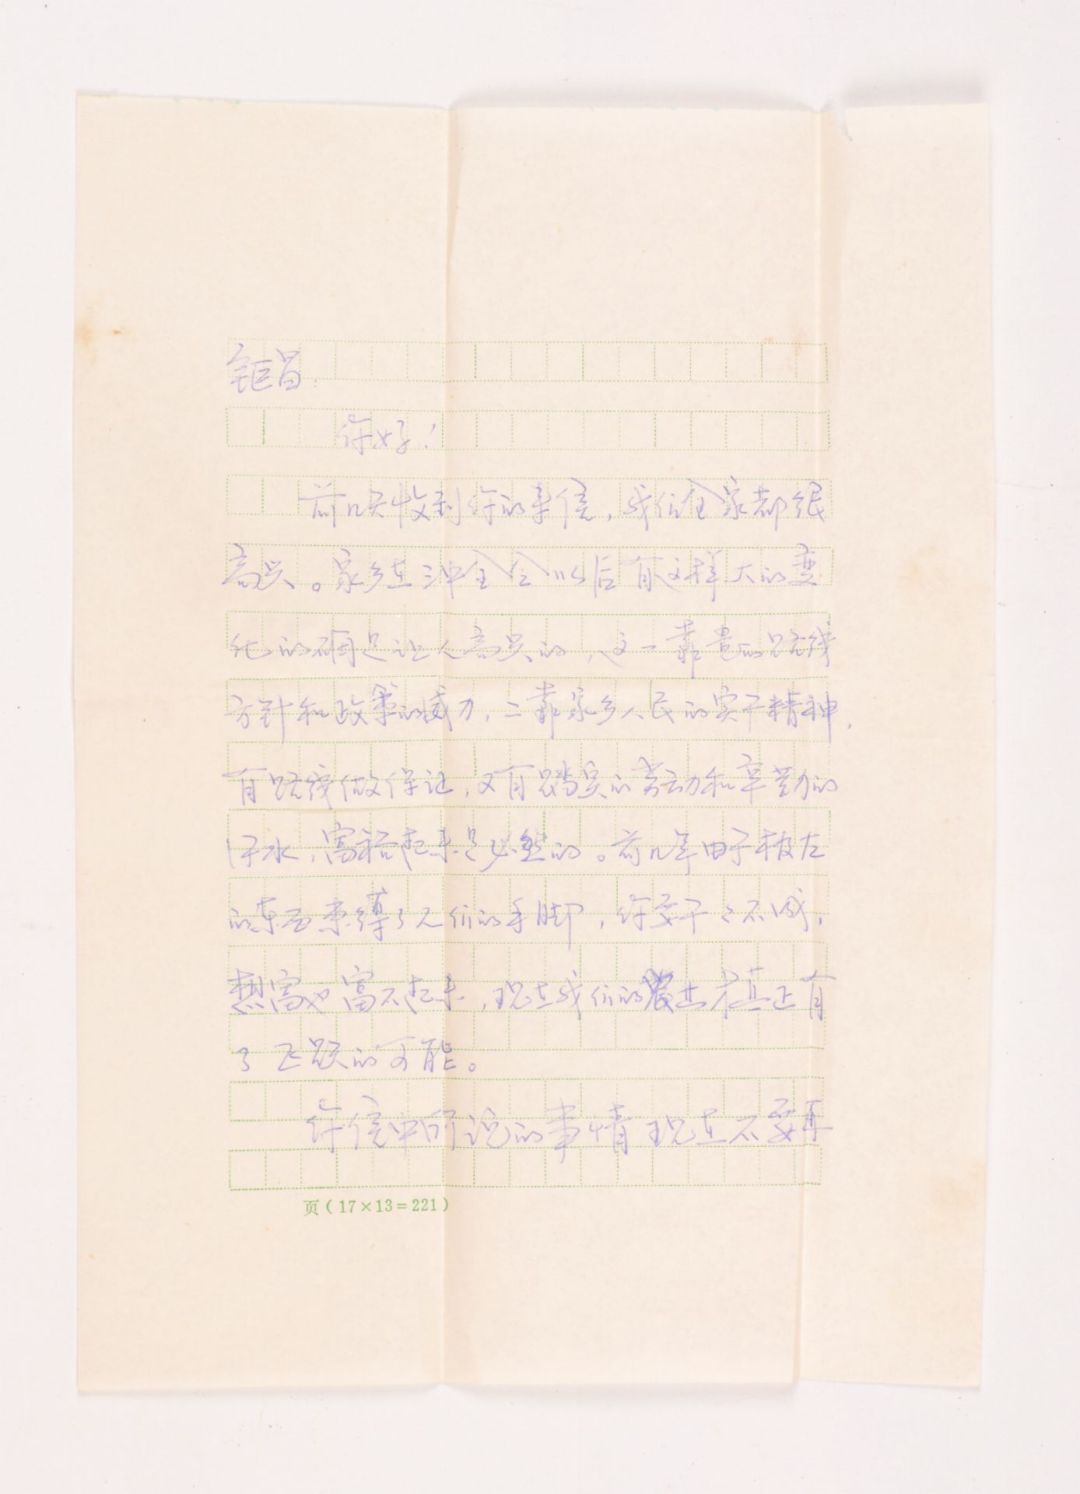 钜昌:
你好!
前几天收到你的来信,我们全家都很
高兴。家乡在三中全会以后有这样大的变
化的确是让人高兴的,这一靠党的路线
方针和政策的威力,二靠家乡人民的实干精神,
有路线做保证,又有踏实的劳动和辛勤的
汗水,富裕起来是必然的。前几年由于极左
的东西束缚了人们的手脚,你要干干不成,
想富也富不起来,现在我们的农业才真正有
了飞跃的可能。
你信中所说的事情现在不要再
页(17×13=221)